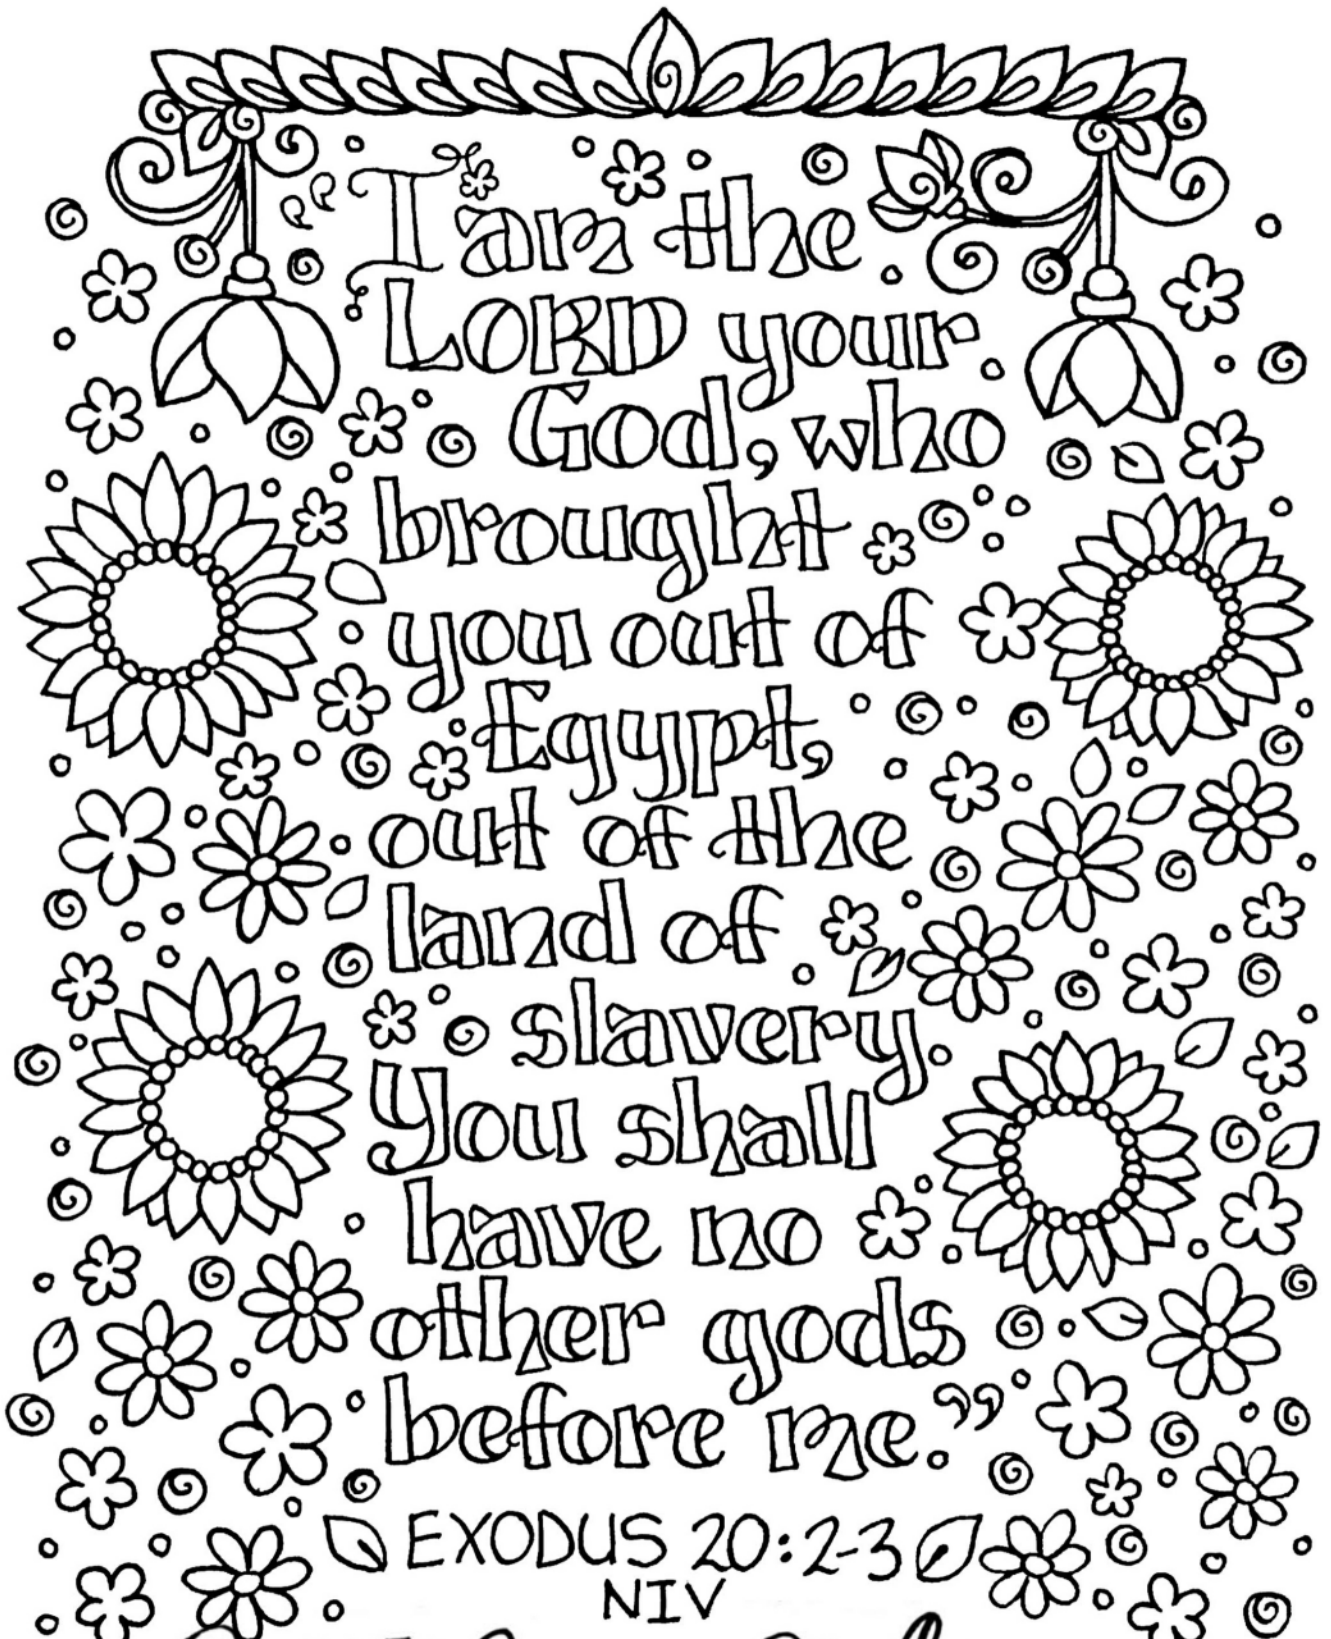 “I am the
LORD your
God, who
brought
you out of
Egypt,
out of the
land of
slavery.
You shall
have no
other gods
before me.”
EXODUS 20:2-3
NIV